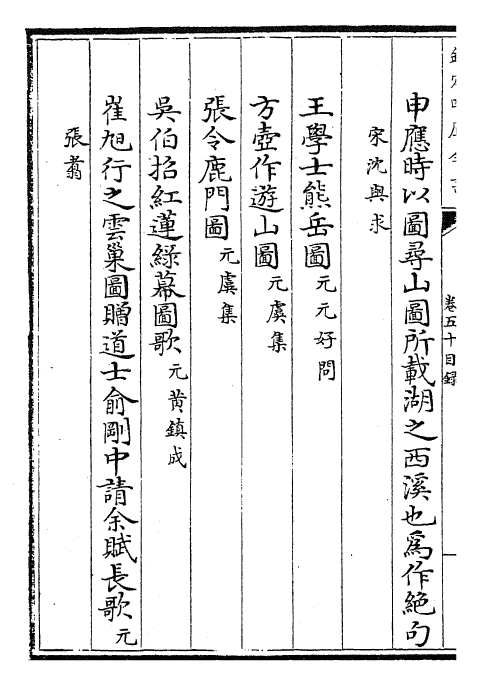 卷五十目錄
申應時以圖尋山圖所載湖之西溪也爲作絶句
宋沈與求
王學士熊岳圖元元好問
方壺作遊山圖元虞集
張令鹿門圖元虞集
吳伯招紅蓮綠幕圖歌元黃鎮成
崔旭行之雲巢圖贈道士俞剛中請余賦長歌元
張翥